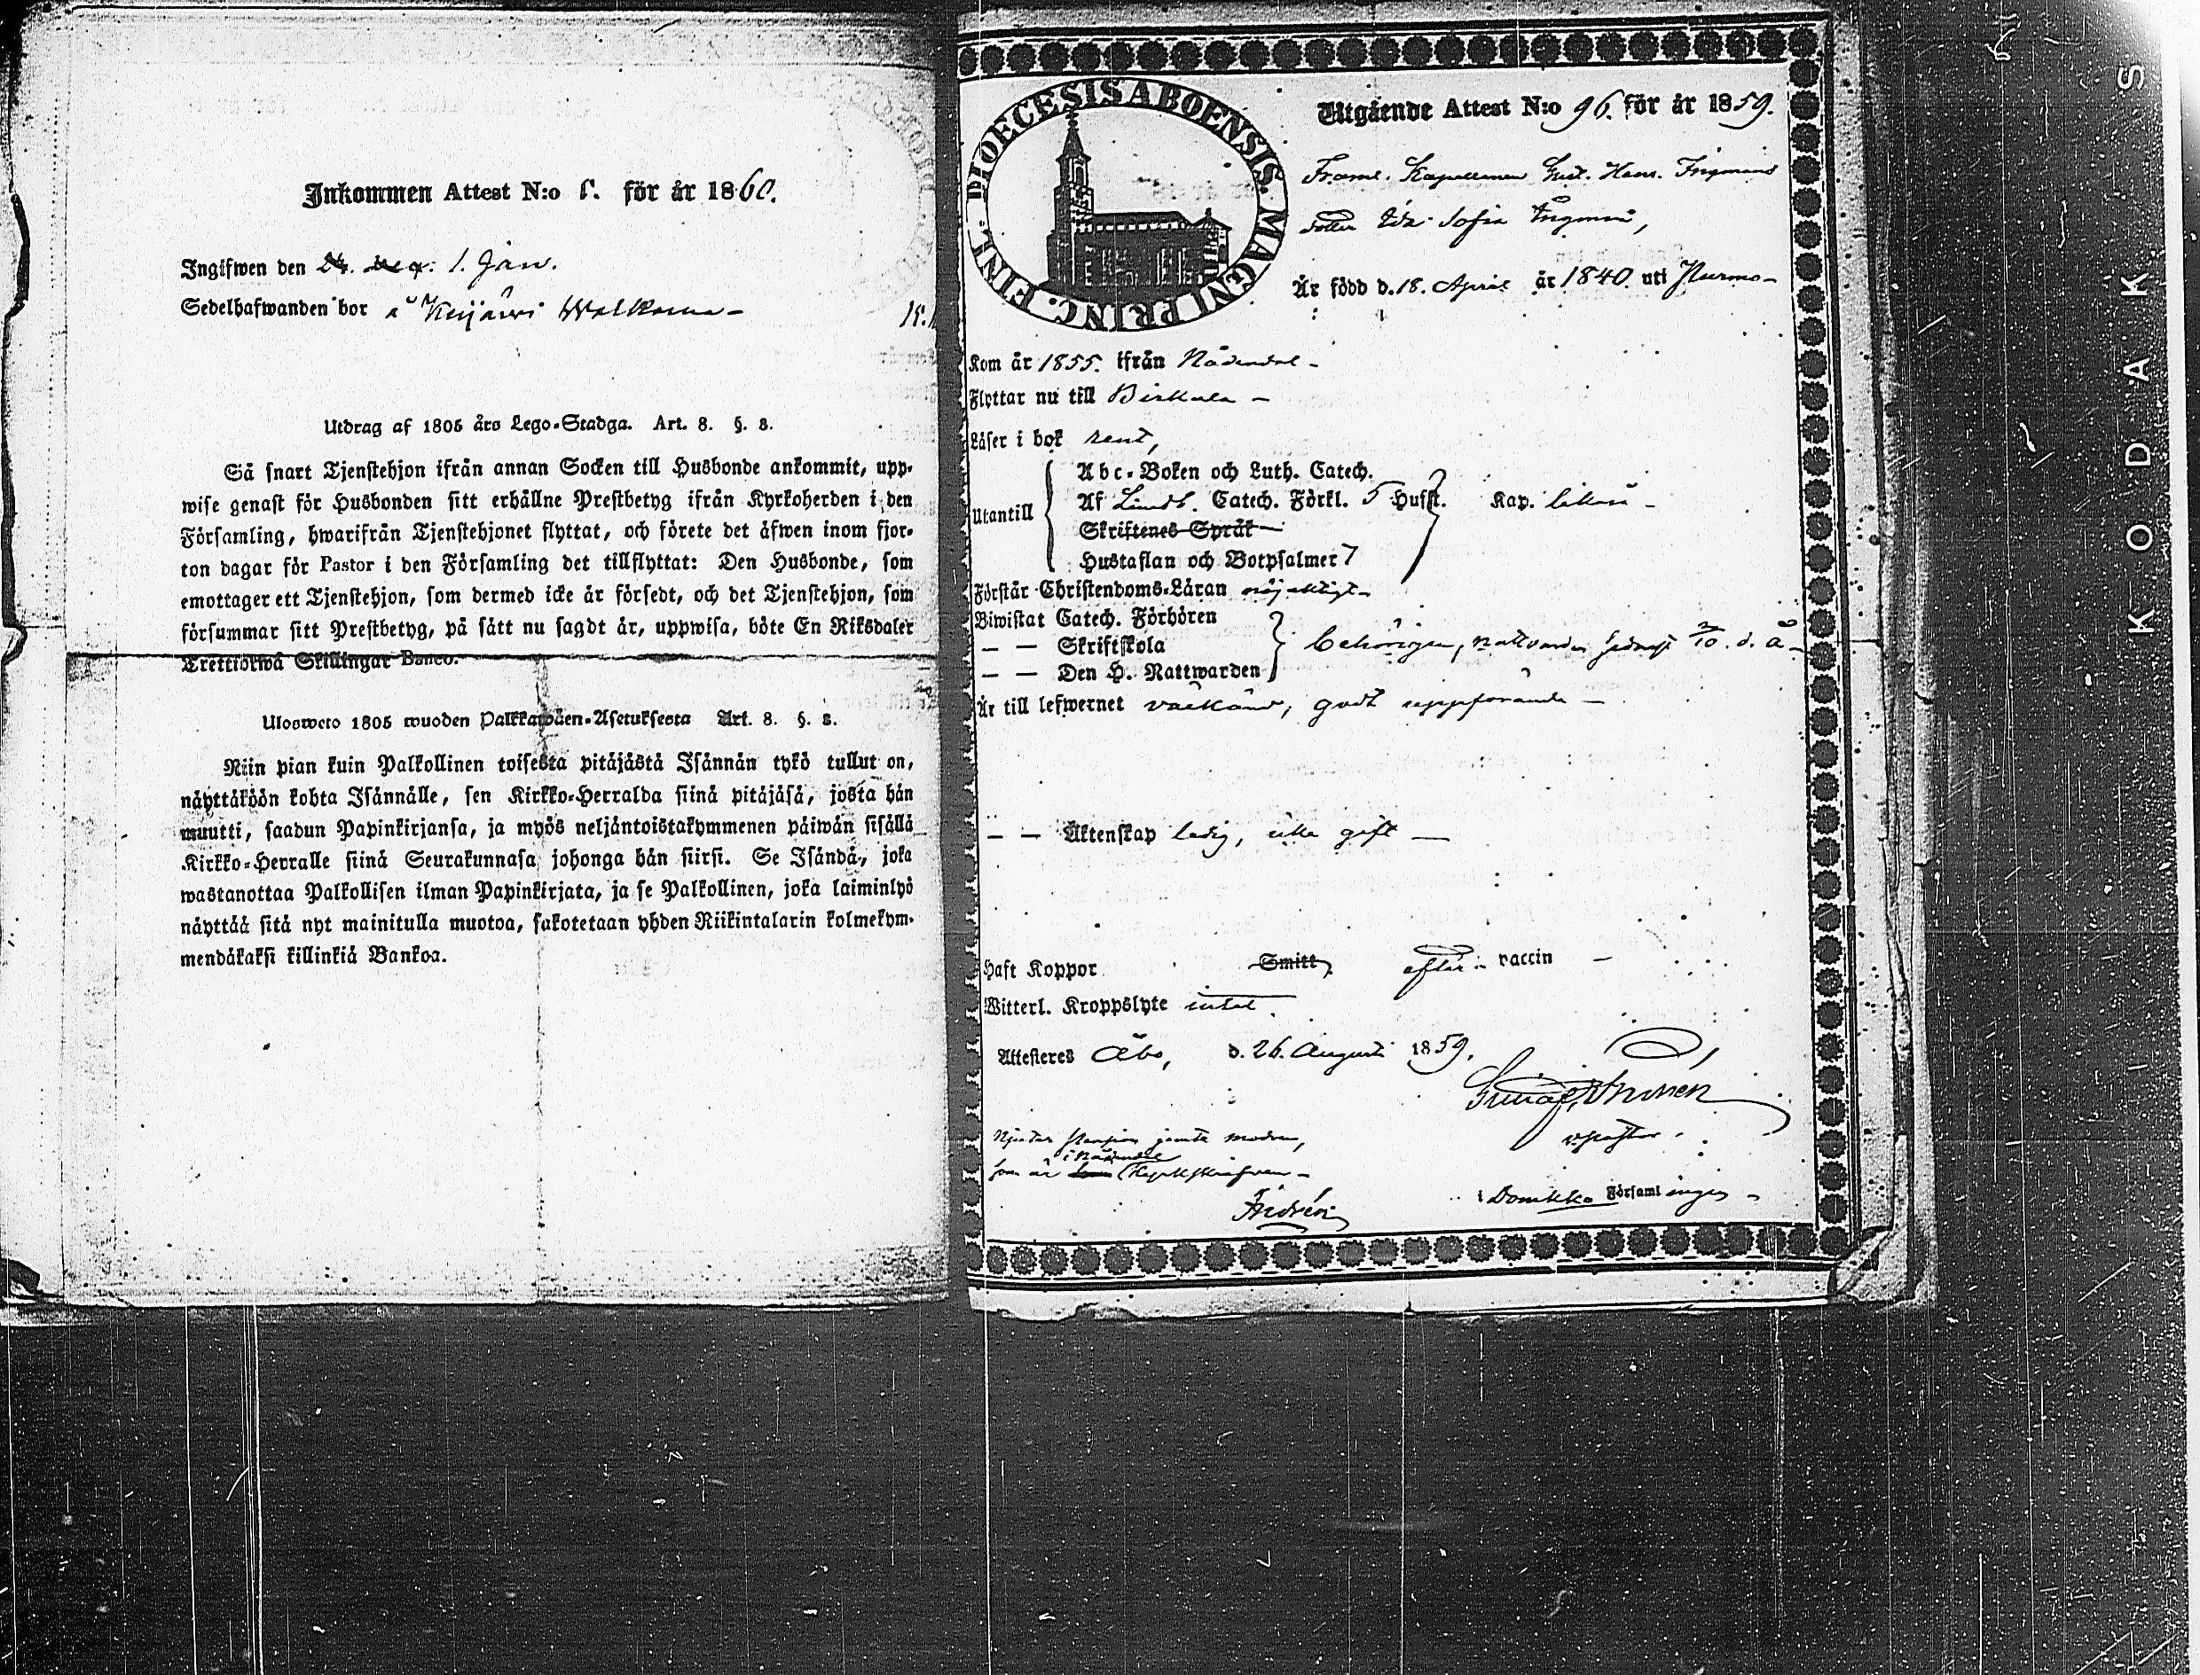 Inkommen Attest N:o för år 1860.
Ingifwen den 24. 1. Jan.
Sedelhafwanden bor å
Utdrag af 1805 års Lego-Stadga. Art. 8. §. 8.
Så snart Tjenstehjon ifrån annan Socken till Husbonde ankommit, upp-
wise genast för Husbonden sitt erhållne Prestbetyg ifrån Kyrkoherden i den
Församling, hwarifrån Tjenstehjonet flyttat, och förete det äfwen inom fjor-
ton dagar för Pastor i den Församling det tillflyttat: Den Husbonde, som
emottager ett Tjenstehjon, som dermed icke är försedt, och det Tjenstehjon, som
försummar sitt Prestbetyg, på sätt nu sagdt är, uppwisa, böte En Riksdaler
Trettiotwå Skillingar Banco.
Ulosweto 1805 wuoden Palkkawäen-Asetuksesta Art. 8. §. 8.
Niin pian kuin Palkollinen toisesta pitäjästä Isännän tykö tullut on,
näyttäköön kohta Isännälle, sen Kirkko-Herralda siinä pitäjäsä, josta hän
muutti, saadun Papinkirjansa, ja myös neljäntoistakymmenen päiwän sisällä
Kirkko-Herralle siinä Seurakunnasa johonga hän siirsi. Se Isändä, joka
wastanottaa Palkollisen ilman Papinkirjata, ja se Palkollinen, joka laiminlyö
näyttää sitä nyt mainitulla muotoa, sakotetaan yhden Riikintalarin kolmekym-
mendäkaksi killinkiä Bankoa.
DIOECESIS ABOENSIS. MAGNI PRINC. FINL.
Utgående Attest N:o 96. för år 1859.
Framl. Kapellanen Gust. Herm. Ingmans
dotter Ida Sofia Ingman,
Är född d. 18. April år 1840. uti Nurmo -
Kom år 1855. ifrån Nådendal -
Flyttar nu till Birkala -
Läser i bok rent,
Abc-Boken och Luth. Catech.
Utantill Af Lindb. Catech. Förkl. 5 Hufst. Kap. likaså -
Skriftenes Språk
Hustaflan och Botpsalmer 7
Förstår Christendoms-Läran nöjaktigt -
Biwistat Catech. Förhören
— — Skriftskola behörigen, nattvarden d. å. -
— — Den H. Nattwarden
Är till lefwernet välkänd, godt uppförande -
— — Äktenskap ledig, icke gift —
Haft Koppor Smitt, efter vaccin -
Witterl. Kroppslyte intet
Attesteres Åbo, d. 26. Augusti 1859.
Njuter pension jemte modren,
i Nådendal
som är Kyrkskrifven -
v. pastor
i Domkko Församlingen -
KODAK S